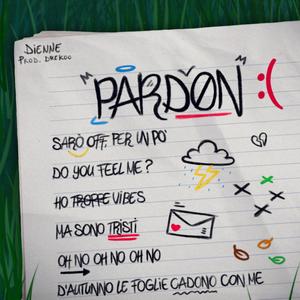 DIENNE
PROD. DREKOO
"PARDØN" :(
SARÒ OFF PER UN PO'
DO YOU FEEL ME?
HO TROPPE VIBES
MA SONO TRISTI
OH NO OH NO OH NO
D'AUTUNNO LE FOGLIE CADONO CON ME